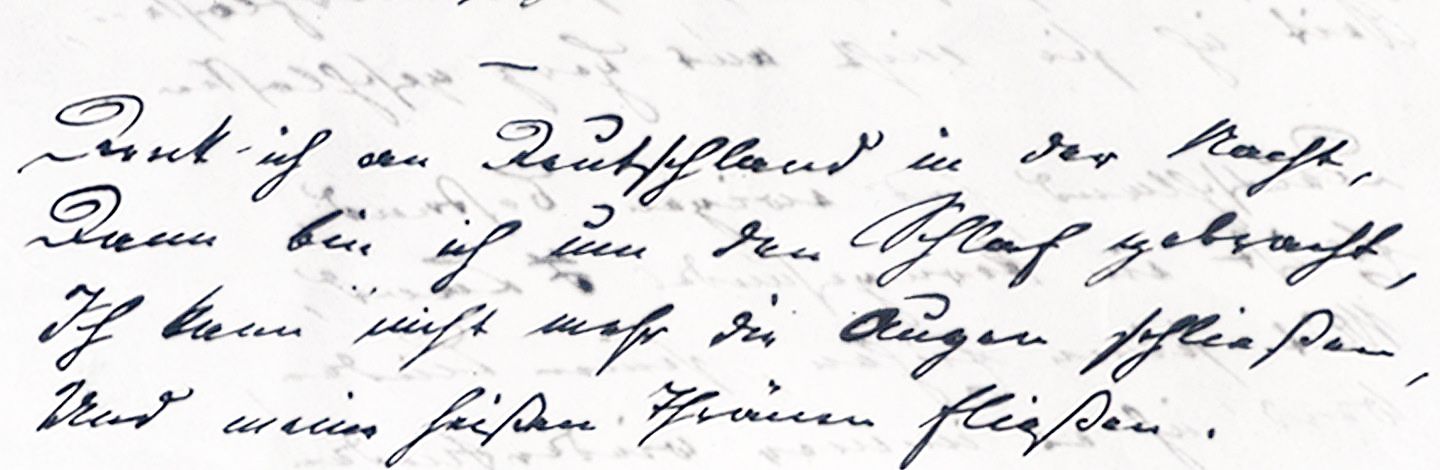 Denk ich an Deutschland in der Nacht,
Dann bin ich um den Schlaf gebracht,
Ich kann nicht mehr die Augen schließen,
Und meine heißen Thränen fließen.